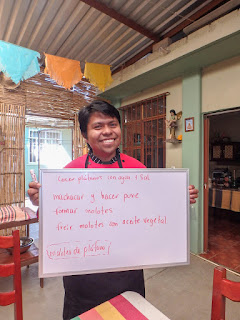 Cocer plátanos con agua y sal
machacar y hacer puré
formar molotes
freír molotes con aceite vegetal
¡molotes de plátano!